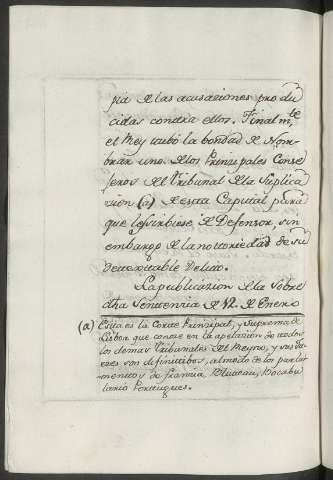 pia de las acusaziones produ
cidas contra ellos. Finalmte
el Rey tubó la bondad de Nom-
brar uno de los Prinzipales Conse
jeros del Tribunal de la Suplica
zion (a) de esta Capital para
que les sirbiese de Defensor, sin
embargo de la notoriedad de su
detextable Delito.
La publicazion de la sobre
dha Sentenzia de 12 de Enero
(a) Esta es la Corte Prinzipal, y Suprema de
Lisboa que conoze en la apelazion de todos
los demas Tribunales del Reyno, y sus
son difinitibos, al modo de los parla
mentos de Franzia. Bluteau, Vocabu
lario Portugues.